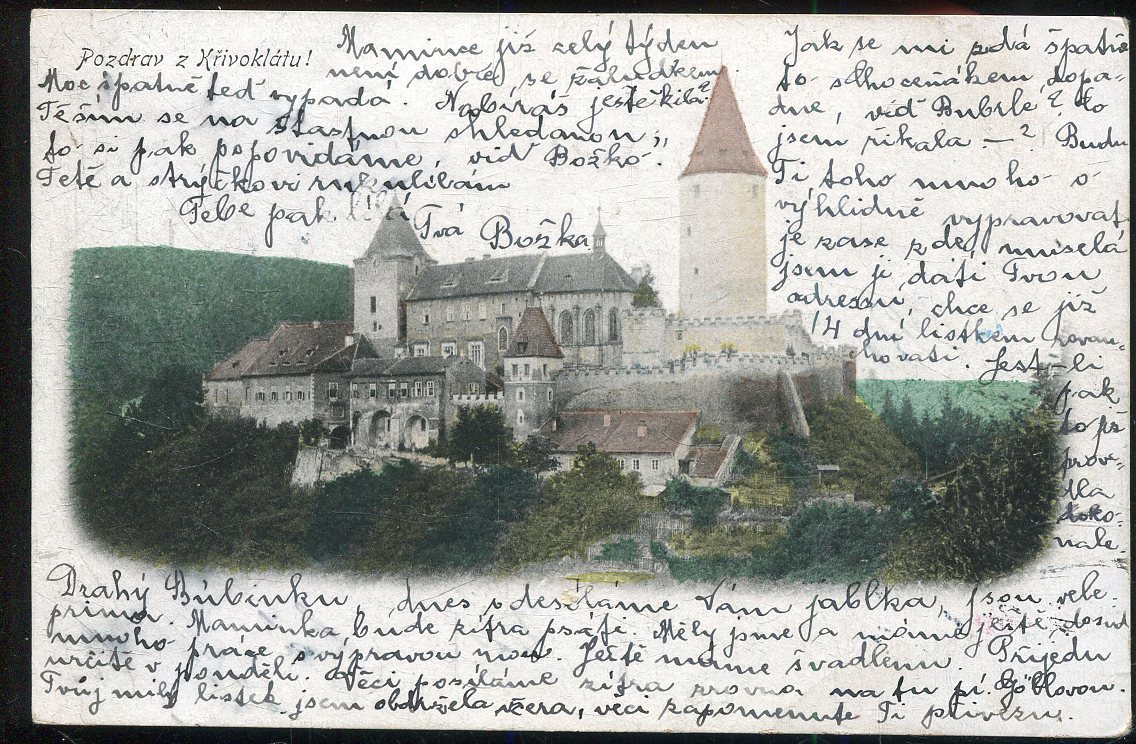 Pozdrav z Křivoklátu!
Drahý Bubínku, dnes odesíláme Vám jablka, jsou vele-
prima. Maminka bude zítra psáti. Měly jsme a máme ještě dosud
mnoho práce s výpravou mou. Ještě máme švadlenu. Přijedu
určitě v pondělí. Věci posíláme zítra zrovna na tu pí.
Tvůj milý lístek jsem obdržela včera, věci zapomenuté Ti přivezu.
Mamince již celý týden
není dobře se žaludkem
Moc špatně teď vypadá. Nabíráš ještě kila?
Těším se na šťastnou shledanou,
to si pak popovidáme, viď Božko.
Tetě a strýčkovi ruku líbám
Tebe pak líbá Tvá Božka
Jak se mi zdá špatně
to s dopa-
dne, viď Bubrle? to
jsem říkala – ? Budu
Ti toho mnoho o
výhlídně vypravovat
je zase zde, musela
jsem jí dáti Tvou
adresu, chce se již
14 dní lístkem
. Jest-li
pak
to již
prov-
dla
doko-
nale.